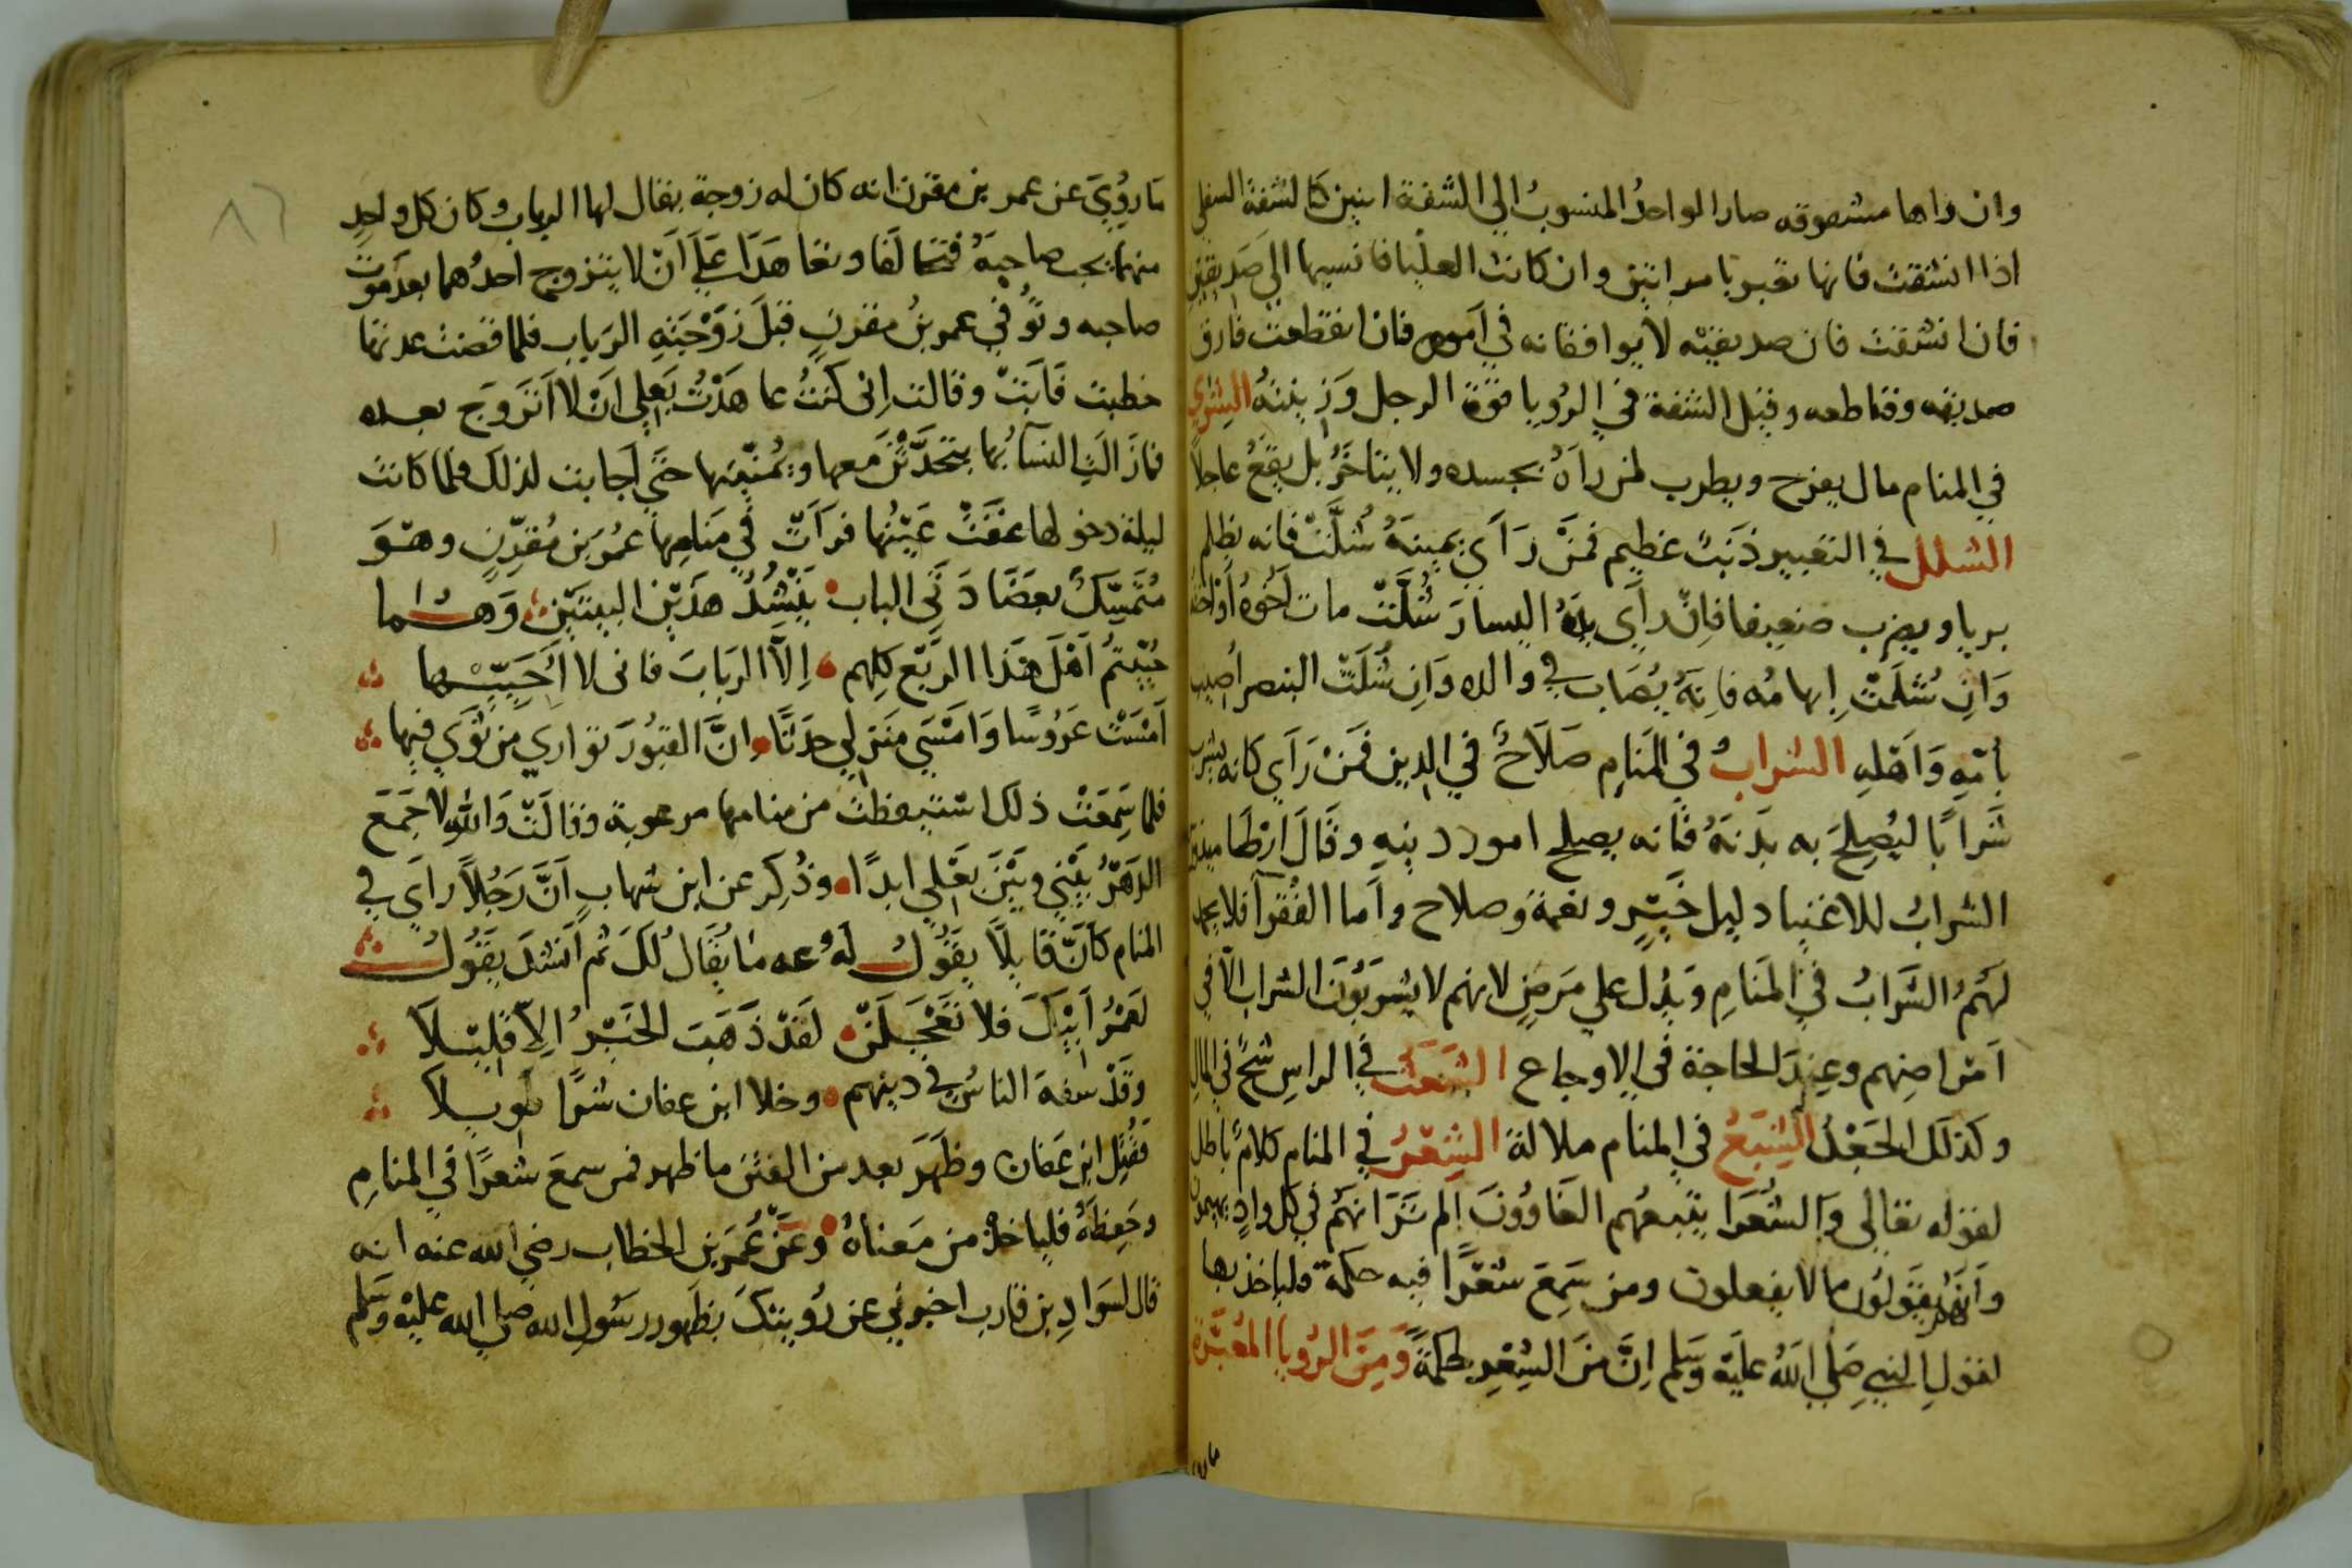 وان راها مشقوقه صار الواحدُ المنسوبُ الي الشفة اثنين كالشفة السفلي
اذا انشقت فانها تعبر بامراتين وان كانت العليا فانسبها الي صَديقين
فان انشقت فان صديقيه لا يوافقانه في أموره فان انقطعت فارق
صديقه وقاطعه وقيل الشفة في الرُويا قوّة الرجل وَزينتهُ الشِري
في المنام مال يفرح ويطرب لمن راهُ بجسده ولا يتاخرُ بل يقعُ عاجلاً
الشلل في التعبير ذَنبٌ عَظيم فمَن رَأي يمينهُ شُلَّتْ فانه يظلم
بريا ويضرب ضعيفا فاِن رأي يدهُ اليسارَ شُلَّتْ مات اَخوُهُ اَو اخته
وَاِن شُلَتْ اِبهامُه فاِنهُ يُصَاب في والده وَاِن شُلَتْ البنصر أُصيب
بامّهِ وَاَهْلهِ الشرابُ في المَنامِ صَلَاحٌ في الدين فمَنْ رَأي كانه يشرب
شَرابًا ليُصِلحَ به بَدَنهُ فانه يصلح امور دينهِ وقَالَ ارطاميدورس
الشرابُ للاغنيا دليل خَيرٍ ونعمة وصلاح وأما الفُقرآ فلا يحمد
لهمُ الشَرابُ في المَنامِ وَيدُل علي مَرضٍ لانهم لا يشربُونَ الشراب الّا في
اَمْراضِهم وعِندَ الحاجة في الاوجاع الشَعَث في الراسِ شحٌ في المال
وكذلك الجَعْدُ الشبَعُ في المنام ملالة الشِعْرُ في المنام كلامٌ باطل
لقوله تعالى وَالشُعَرا يتبعهُم الغَاوُونَ اَلم تَرَ انَهُم في كل وادٍ يهيمون
وَاَنَهُم يقَولُون ما لا يفعلون ومن سَمِعَ شعْرًا فيه حكمة فليأخذ بها
لقولِ النبي صَلي اللهُ عليْه وَسَلم اِنَّ منَ الشِعْرِ لحكمةً وَمِنَ الرُويا المُعبَّرة
مَا رُوِيَ عن عمر بن مقرن انه كان له زوجة يقال لها الرباب وكان كل واحِدٍ
منهما يحب صاحِبَهُ فتحالفا وتعاهَدَا عَلَي اَنْ لا يتزوج احدُهما بعدَ مَوت
صاحبه وتُوُفي عمر بنُ مقرنٍ قبلَ زَوْجَتهِ الرَباب فلما قضت عدتها
خطبت فَابَتْ وقالت اِنى كَنتُ عاهَدْتُ بَعلي اَنْ لا اَتَزَوجَ بعده
فمازَالت النسآ بُها يتحَدَّثْنَ معها ويُمنّينها حَتَى اَجابت لذلك فلما كانت
ليلة دخولها غفَتْ عَيْنُها فرَاَتْ في مَنامِها عمُر بن مُقرّنٍ وهْوَ
مُتَمسِّكٌ بعضَادَتي الباب يَنشدُ هذَينِ البيتَين وَهُما
حُيّيتُم اَهْلَ هَذا الرَبْعِ كلِهم اِلاّ الرَبابَ فانى لا اُحَيّيها
اَمْسَتْ عَرُوسًا وَامْسَي مَنزِلي حدَثًا وانَّ القبُورَ توارى من ثوَي فيها
فلما سَمِعَتْ ذلك استيقظت من منامها مرعوبة وقالَتْ وَالله لا جَمَعَ
الدَهْرُ بَيْني وبيْنَ بَعْلي ابدًا وذُكِرَ عن ابن شهاب اَنَّ رَجُلاً رأي في
المنام كاَنَّ قَايلاً يقَوُل لهُ عه ما يُقَال لكَ ثم اَنشدَ يقَوُل
لعَمْرُ اَبيْكَ فلا تعْجَلَنْ لقَدْ ذَهَبَ الخيْرُ اِلّا قليْلاً
وقَدْ سفهَ الناسُ في دينهم وخلا ابن عفان شرًا طوِيلاً
فقُتِل ابن عَفان وظهَر بعد من الفتن ما ظهر فمن سمعَ شعرًا في المنامِ
وحَفِظَهُ فلياخذْ من مَعناهُ وعَنْ عُمَر بن الخطاب رضي الله عنه انه
قال لسَوادِ بن قارب اخبرني عن رُؤيتكَ بظهور رسُولِ الله صلي الله عليْه وَسَلم